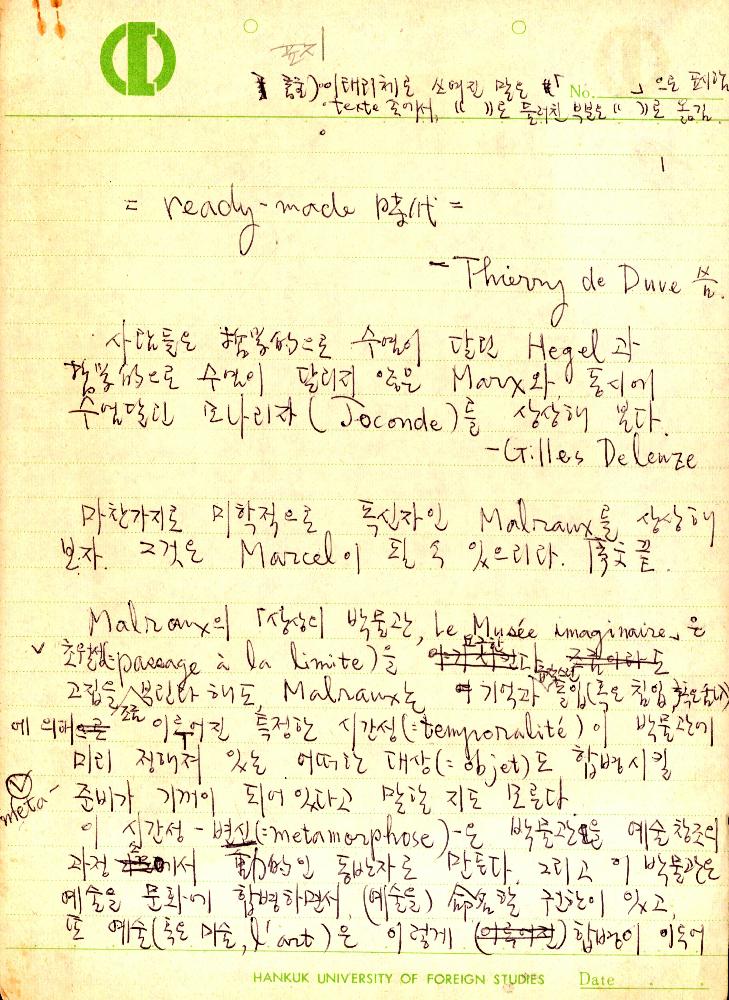 표지
註) 이태리체로 쓰여진 말은 「 No. 」으로 표시함
texte 로에서, " "로 둘러친 부분도 " "로 옮김.
1
= ready-made 時代 =
- Thierry de Duve 씀.
사람들은 哲學的으로 수염이 달린 Hegel과
哲學的으로 수염이 달리지 않은 Marx와 동시에
수염달린 모나리자( Joconde)를 상상해 본다.
-Gilles Deleuze
마찬가지로 미학적으로 독신자인 Malraux를 상상해
보자. 그것은 Marcel이 될 수 있으리라. 끝.
Malraux의 「상상의 박물관, Le Musée imaginaire」은
passage à la limite)을 요구한다
고집을 조금 부린다 해도, Malraux는 기억과 돌입(혹은 침입
에 의해 이루어진 특정한 시간성(=temporalité)이 박물관에
미리 정해져 있는 어떠한 대상(=objet)도 합병시킬
준비가 기꺼이 되어있다고 말할 지도 모른다
meta-
이 시간성 - 변신(=metamorphose)-은 박물관을 예술창조의
과정 속에서 動的인 동반자로 만든다. 그리고 이 박물관은
예술을 문화에 합병하면서, (예술을) 命名할 권한이 있고,
또 예술(혹은 미술, l'art)은 이렇게 (이루어진) 합병이 이득이
HANKUK UNIVERSITY OF FOREIGN STUDIES Date . .